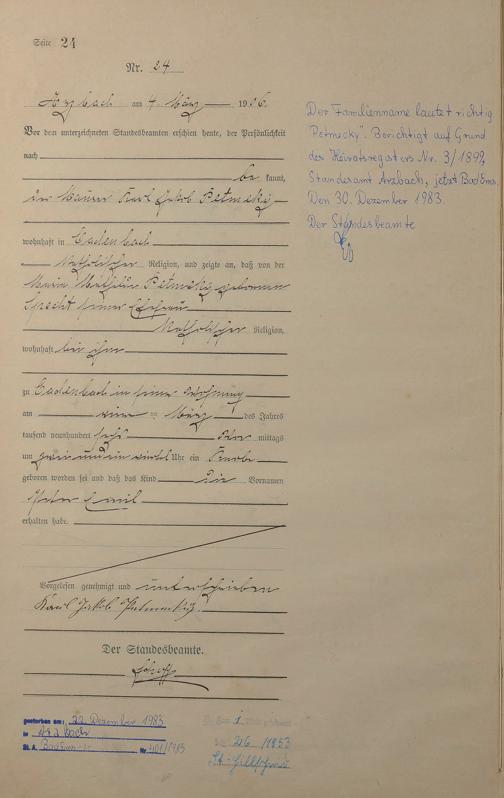 Seite 24
Nr. 24
Arzbach am 4 März 1906.
Vor dem unterzeichneten Standesbeamten erschien heute, der Persönlichkeit
nach
be kannt,
der Maurer Karl Jakob Petmecky
wohnhaft in Cadenbach
katholischer Religion, und zeigte an, daß von der
Maria Mathilde Petmecky geborenen
Specht seiner Ehefrau
katholischer Religion,
wohnhaft bei ihm
zu Cadenbach in seiner Wohnung
am vier März des Jahres
tausend neunhundert sechs Vor mittags
um zwei und ein viertel Uhr ein Knabe
geboren worden sei und daß das Kind die Vornamen
Peter Emil
erhalten habe.
Vorgelesen, genehmigt und unterschrieben
Karl Jakob Petmecky.
Der Standesbeamte.
Der Familienname lautet richtig
"Petmecky". Berichtigt auf Grund
des Heiratsregisters Nr. 3/1899,
Standesamt Arzbach, jetzt Bad Ems.
Den 30. Dezember 1983.
Der Standesbeamte
gestorben am: 22. Dezember 1983
in Arzbach
St. A. Bad Ems Nr. 401/1983
1
26 /1953